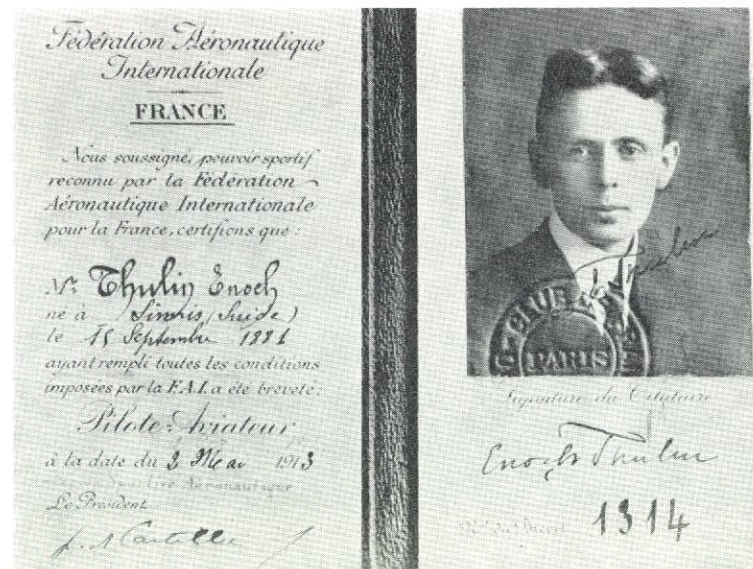 Fédération Aéronautique
Internationale
FRANCE
Nous soussigné, pouvoir sportif
reconnu par la Fédération
Aéronautique Internationale
pour la France, certifions que :
Mr. Thulin Enoch
né à Simris (Suède)
le 15 Septembre 1881
ayant rempli toutes les conditions
imposées par la F.A.I. a été breveté :
Pilote-Aviateur
à la date du 2 Mai 1913
Le Président
Thulin
PARIS
Signature du Titulaire
Enoch Thulin
1314